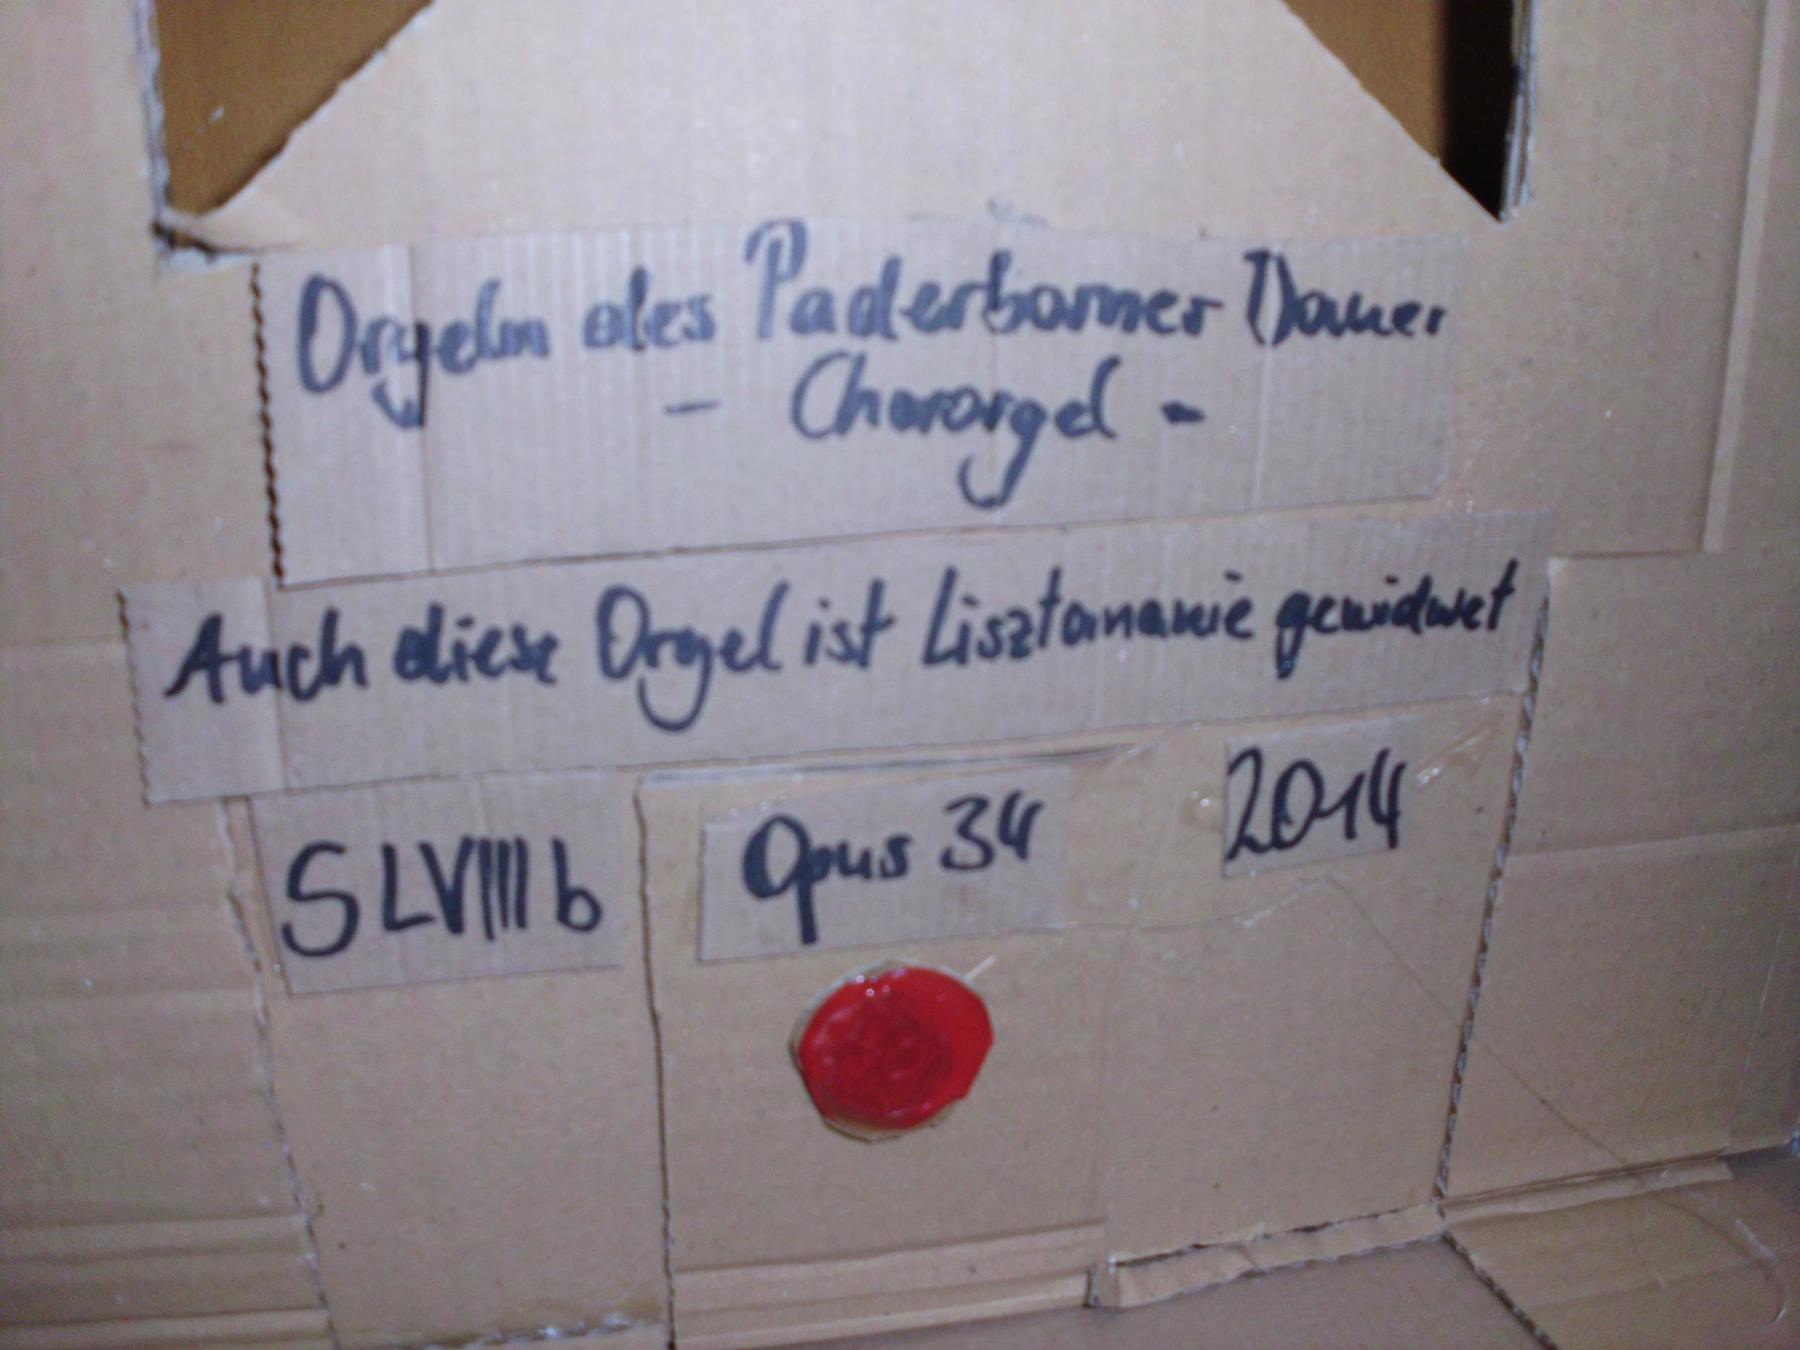 Orgeln des Paderborner Domes
- Chororgel -
Auch diese Orgel ist Lisztomanie gewidmet
SLVIII b
Opus 34
2014